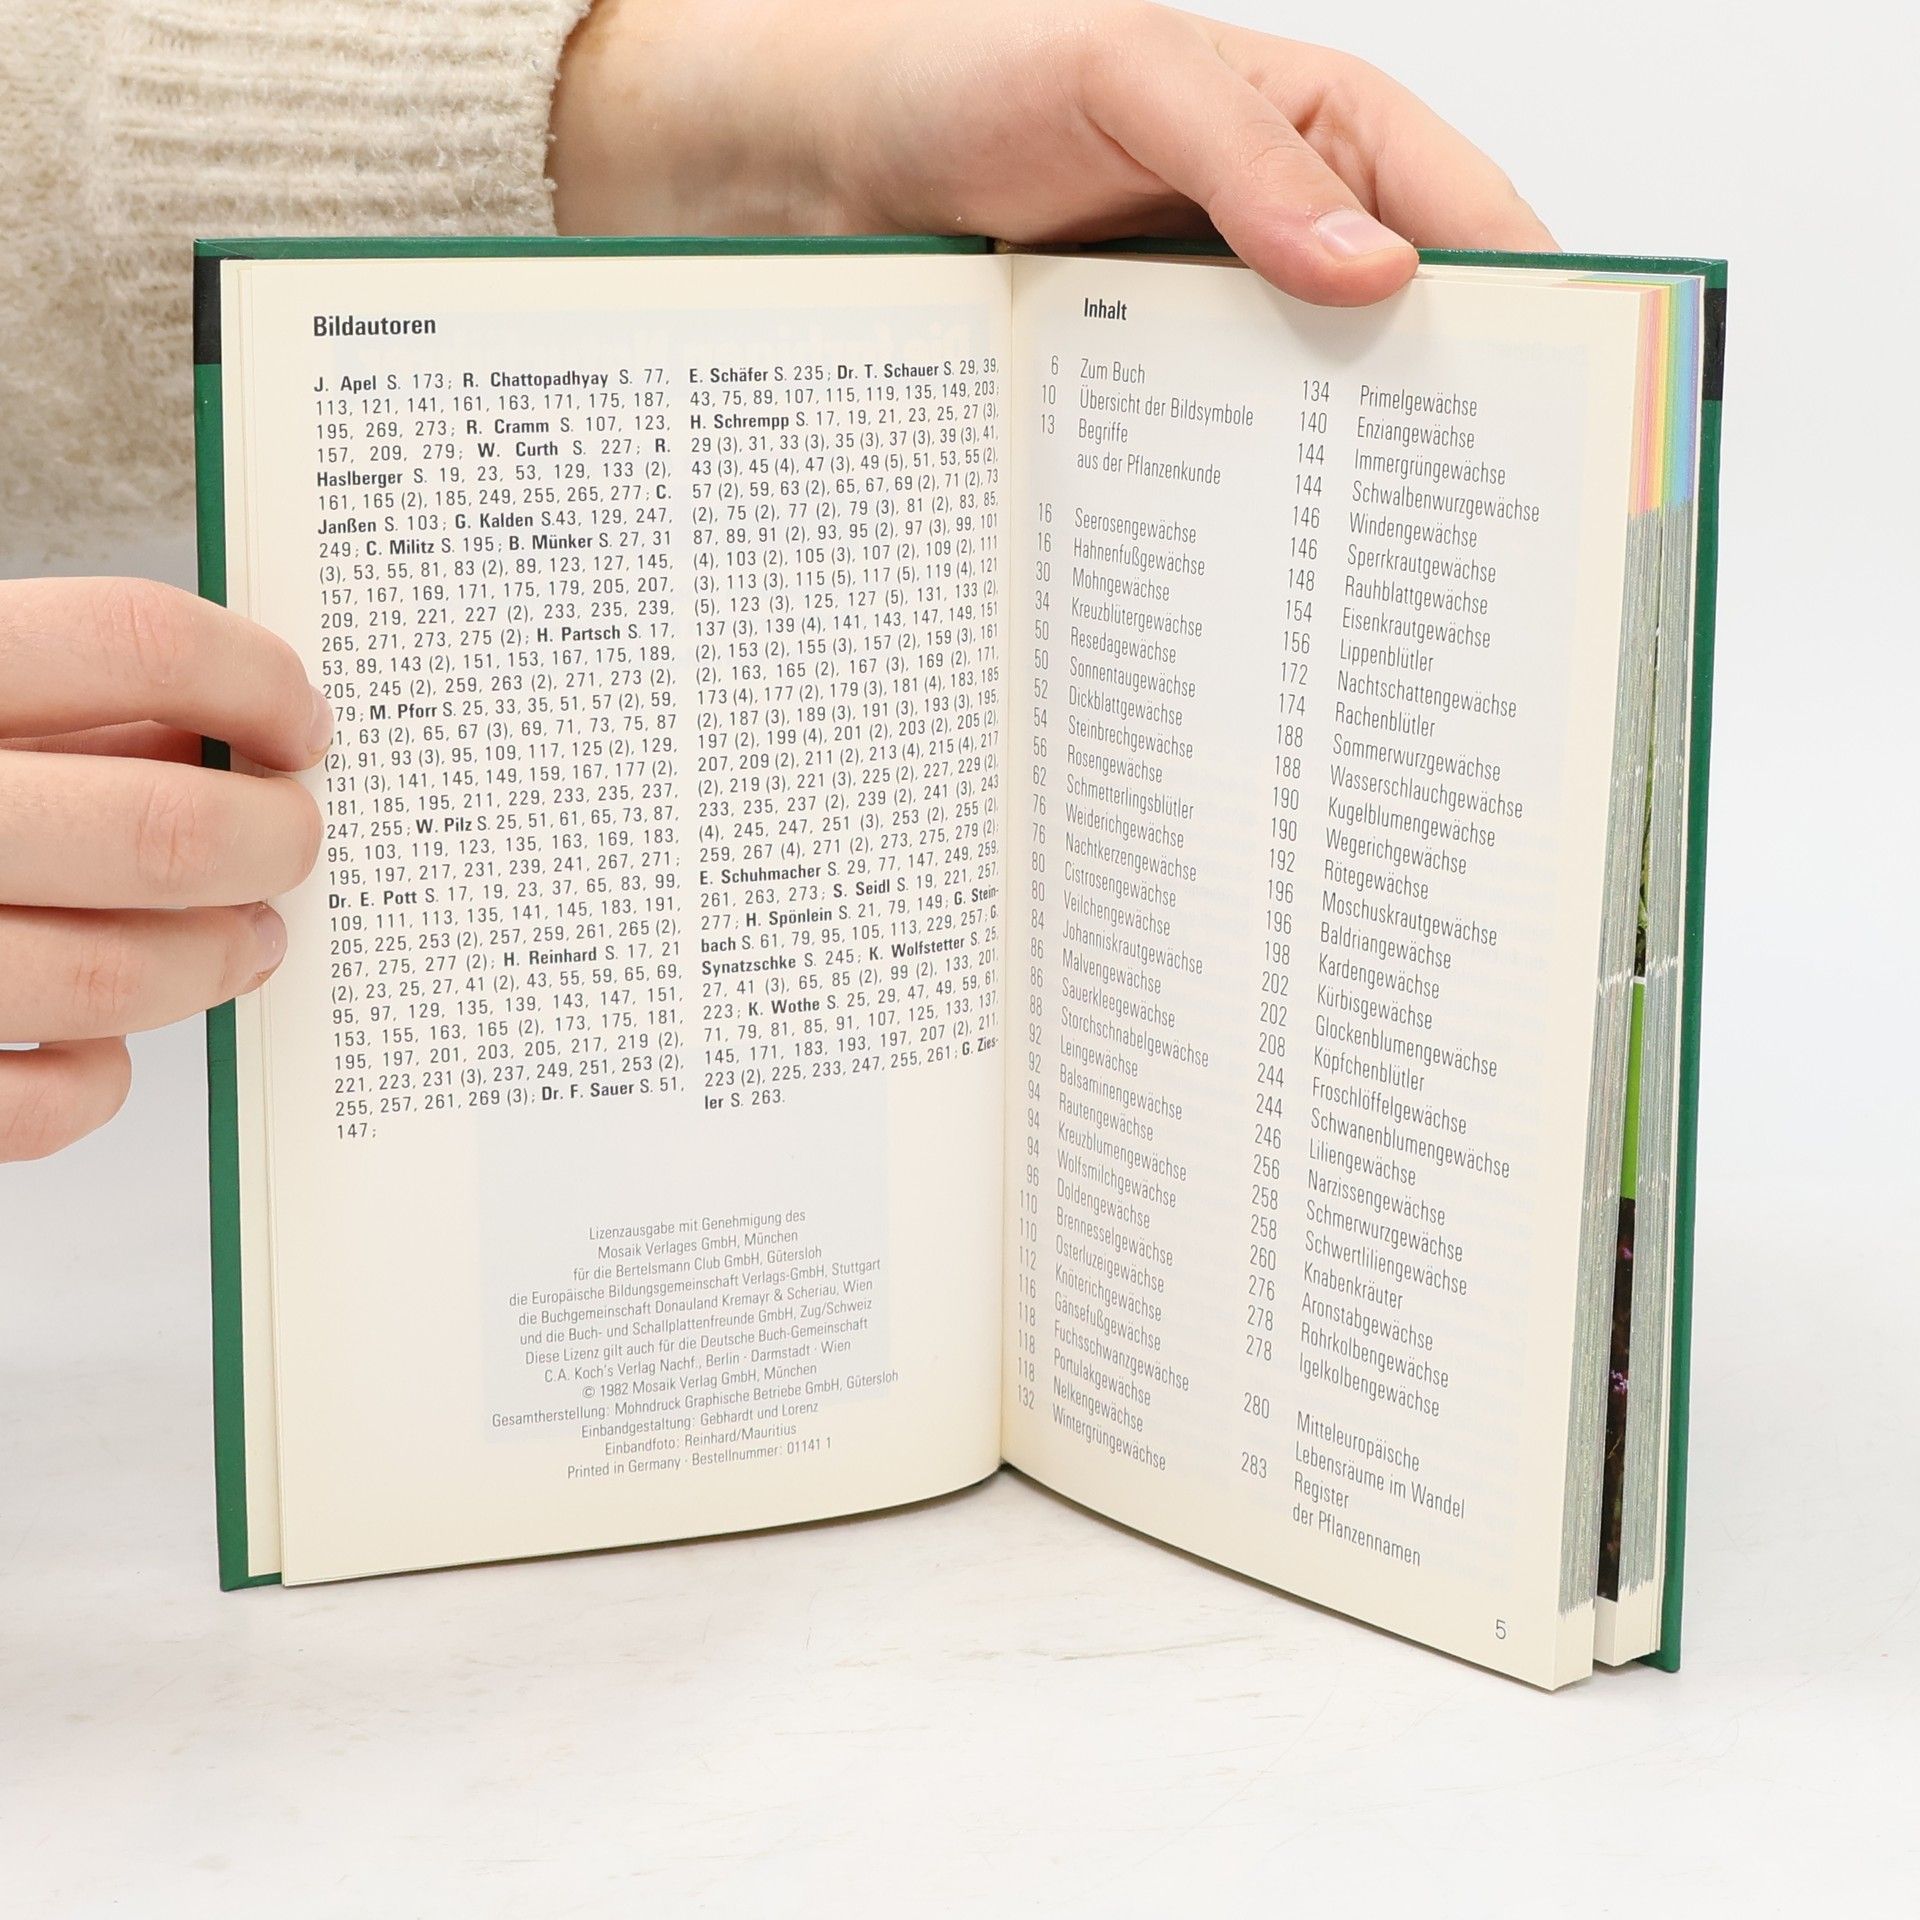 Bildautoren
J. Apel S. 173; R. Chattopadhyay S. 77,
113, 121, 141, 161, 163, 171, 175, 187,
195, 269, 273; R. Cramm S. 107, 123,
157, 209, 279; W. Curth S. 227; R.
Haslberger S. 19, 23, 53, 129, 133 (2),
161, 165 (2), 185, 249, 255, 265, 277; C.
Janßen S. 103; G. Kalden S.43, 129, 247,
249; C. Militz S. 195; B. Münker S. 27, 31
(3), 53, 55, 81, 83 (2), 89, 123, 127, 145,
157, 167, 169, 171, 175, 179, 205, 207,
209, 219, 221, 227 (2), 233, 235, 239,
265, 271, 273, 275 (2); H. Partsch S. 17,
53, 89, 143 (2), 151, 153, 167, 175, 189,
205, 245 (2), 259, 263 (2), 271, 273 (2),
79; M. Pforr S. 25, 33, 35, 51, 57 (2), 59,
63 (2), 65, 67 (3), 69, 71, 73, 75, 87
(2), 91, 93 (3), 95, 109, 117, 125 (2), 129,
131 (3), 141, 145, 149, 159, 167, 177 (2),
181, 185, 195, 211, 229, 233, 235, 237,
247, 255; W. Pilz S. 25, 51, 61, 65, 73, 87,
95, 103, 119, 123, 135, 163, 169, 183,
195, 197, 217, 231, 239, 241, 267, 271;
Dr. E. Pott S. 17, 19, 23, 37, 65, 83, 99,
109, 111, 113, 135, 141, 145, 183, 191,
205, 225, 253 (2), 257, 259, 261, 265 (2),
267, 275, 277 (2); H. Reinhard S. 17, 21
(2), 23, 25, 27, 41 (2), 43, 55, 59, 65, 69,
95, 97, 129, 135, 139, 143, 147, 151,
153, 155, 163, 165 (2), 173, 175, 181,
195, 197, 201, 203, 205, 217, 219 (2),
221, 223, 231 (3), 237, 249, 251, 253 (2),
255, 257, 261, 269 (3); Dr. F. Sauer S. 51,
147;
E. Schäfer S. 235; Dr. T. Schauer S. 29, 39,
43, 75, 89, 107, 115, 119, 135, 149, 203;
H. Schrempp S. 17, 19, 21, 23, 25, 27 (3),
29 (3), 31, 33 (3), 35 (3), 37 (3), 39 (3), 41,
43 (3), 45 (4), 47 (3), 49 (5), 51, 53, 55 (2),
57 (2), 59, 63 (2), 65, 67, 69 (2), 71 (2), 73
(2), 75 (2), 77 (2), 79 (3), 81 (2), 83, 85,
87, 89, 91 (2), 93, 95 (2), 97 (3), 99, 101
(4), 103 (2), 105 (3), 107 (2), 109 (2), 111
(3), 113 (3), 115 (5), 117 (5), 119 (4), 121
(5), 123 (3), 125, 127 (5), 131, 133 (2),
137 (3), 139 (4), 141, 143, 147, 149, 151
(2), 153 (2), 155 (3), 157 (2), 159 (3), 161
(2), 163, 165 (2), 167 (3), 169 (2), 171,
173 (4), 177 (2), 179 (3), 181 (4), 183, 185
(2), 187 (3), 189 (3), 191 (3), 193 (3), 195,
197 (2), 199 (4), 201 (2), 203 (2), 205 (2),
207, 209 (2), 211 (2), 213 (4), 215 (4), 217
(2), 219 (3), 221 (3), 225 (2), 227, 229 (2),
233, 235, 237 (2), 239 (2), 241 (3), 243
(4), 245, 247, 251 (3), 253 (2), 255 (2),
259, 267 (4), 271 (2), 273, 275, 279 (2);
E. Schuhmacher S. 29, 77, 147, 249, 259,
261, 263, 273; S. Seidl S. 19, 221, 257,
277; H. Spönlein S. 21, 79, 149; G. Stein-
bach S. 61, 79, 95, 105, 113, 229, 257; G.
Synatzschke S. 245; K. Wolfstetter S. 25,
27, 41 (3), 65, 85 (2), 99 (2), 133, 201,
223; K. Wothe S. 25, 29, 47, 49, 59, 61,
71, 79, 81, 85, 91, 107, 125, 133, 137,
145, 171, 183, 193, 197, 207 (2), 211,
223 (2), 225, 233, 247, 255, 261; G. Zies-
ler S. 263.
Lizenzausgabe mit Genehmigung des
Mosaik Verlages GmbH, München
für die Bertelsmann Club GmbH, Gütersloh
die Europäische Bildungsgemeinschaft Verlags-GmbH, Stuttgart
die Buchgemeinschaft Donauland Kremayr & Scheriau, Wien
und die Buch- und Schallplattenfreunde GmbH, Zug/Schweiz
Diese Lizenz gilt auch für die Deutsche Buch-Gemeinschaft
C.A. Koch's Verlag Nachf., Berlin · Darmstadt · Wien
© 1982 Mosaik Verlag GmbH, München
Gesamtherstellung: Mohndruck Graphische Betriebe GmbH, Gütersloh
Einbandgestaltung: Gebhardt und Lorenz
Einbandfoto: Reinhard/Mauritius
Printed in Germany · Bestellnummer: 01141 1
Inhalt
6 Zum Buch
10 Übersicht der Bildsymbole
13 Begriffe
aus der Pflanzenkunde
16 Seerosengewächse
16 Hahnenfußgewächse
30 Mohngewächse
34 Kreuzblütergewächse
50 Resedagewächse
50 Sonnentaugewächse
52 Dickblattgewächse
54 Steinbrechgewächse
56 Rosengewächse
62 Schmetterlingsblütler
76 Weiderichgewächse
76 Nachtkerzengewächse
80 Cistrosengewächse
80 Veilchengewächse
84 Johanniskrautgewächse
86 Malvengewächse
86 Sauerkleegewächse
88 Storchschnabelgewächse
92 Leingewächse
92 Balsaminengewächse
94 Rautengewächse
94 Kreuzblumengewächse
94 Wolfsmilchgewächse
96 Doldengewächse
110 Brennesselgewächse
110 Osterluzeigewächse
112 Knöterichgewächse
116 Gänsefußgewächse
118 Fuchsschwanzgewächse
118 Portulakgewächse
118 Nelkengewächse
132 Wintergrüngewächse
134 Primelgewächse
140 Enziangewächse
144 Immergrüngewächse
144 Schwalbenwurzgewächse
146 Windengewächse
146 Sperrkrautgewächse
148 Rauhblattgewächse
154 Eisenkrautgewächse
156 Lippenblütler
172 Nachtschattengewächse
174 Rachenblütler
188 Sommerwurzgewächse
188 Wasserschlauchgewächse
190 Kugelblumengewächse
190 Wegerichgewächse
192 Rötegewächse
196 Moschuskrautgewächse
196 Baldriangewächse
198 Kardengewächse
202 Kürbisgewächse
202 Glockenblumengewächse
208 Köpfchenblütler
244 Froschlöffelgewächse
244 Schwanenblumengewächse
246 Liliengewächse
256 Narzissengewächse
258 Schmerwurzgewächse
258 Schwertliliengewächse
260 Knabenkräuter
276 Aronstabgewächse
278 Rohrkolbengewächse
278 Igelkolbengewächse
280 Mitteleuropäische
Lebensräume im Wandel
283 Register
der Pflanzennamen
5